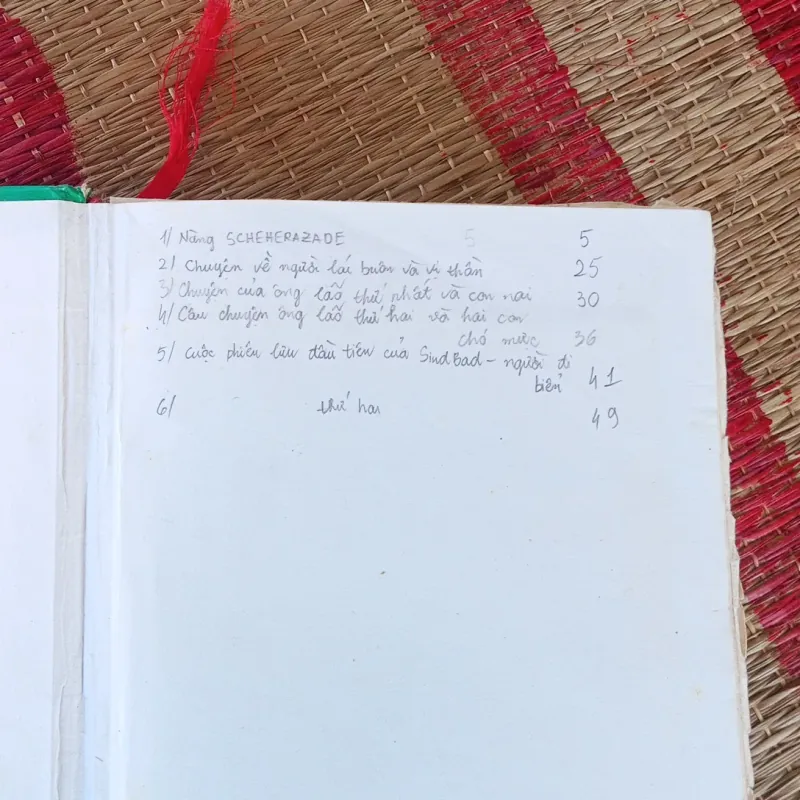 1/ Nàng SCHEHERAZADE 5 5
2/ Chuyện về người lái buôn và vị thần 25
3/ Chuyện của ông lão thứ nhất và con nai 30
4/ Câu chuyện ông lão thứ hai và hai con
chó mực 36
5/ Cuộc phiêu lưu đầu tiên của SindBad - người đi
biển 41
6/ thứ hai 49